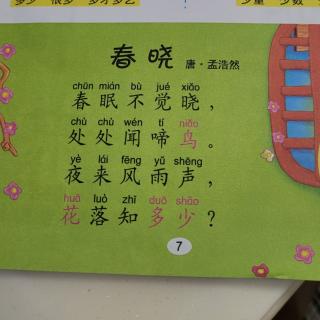 多少 很多 多才多艺
少量 少数
春晓 唐·孟浩然
chūn mián bù jué xiǎo
春眠不觉晓，
chù chù wén tí niǎo
处处闻啼鸟。
yè lái fēng yǔ shēng
夜来风雨声，
huā luò zhī duō shǎo
花落知多少？
7